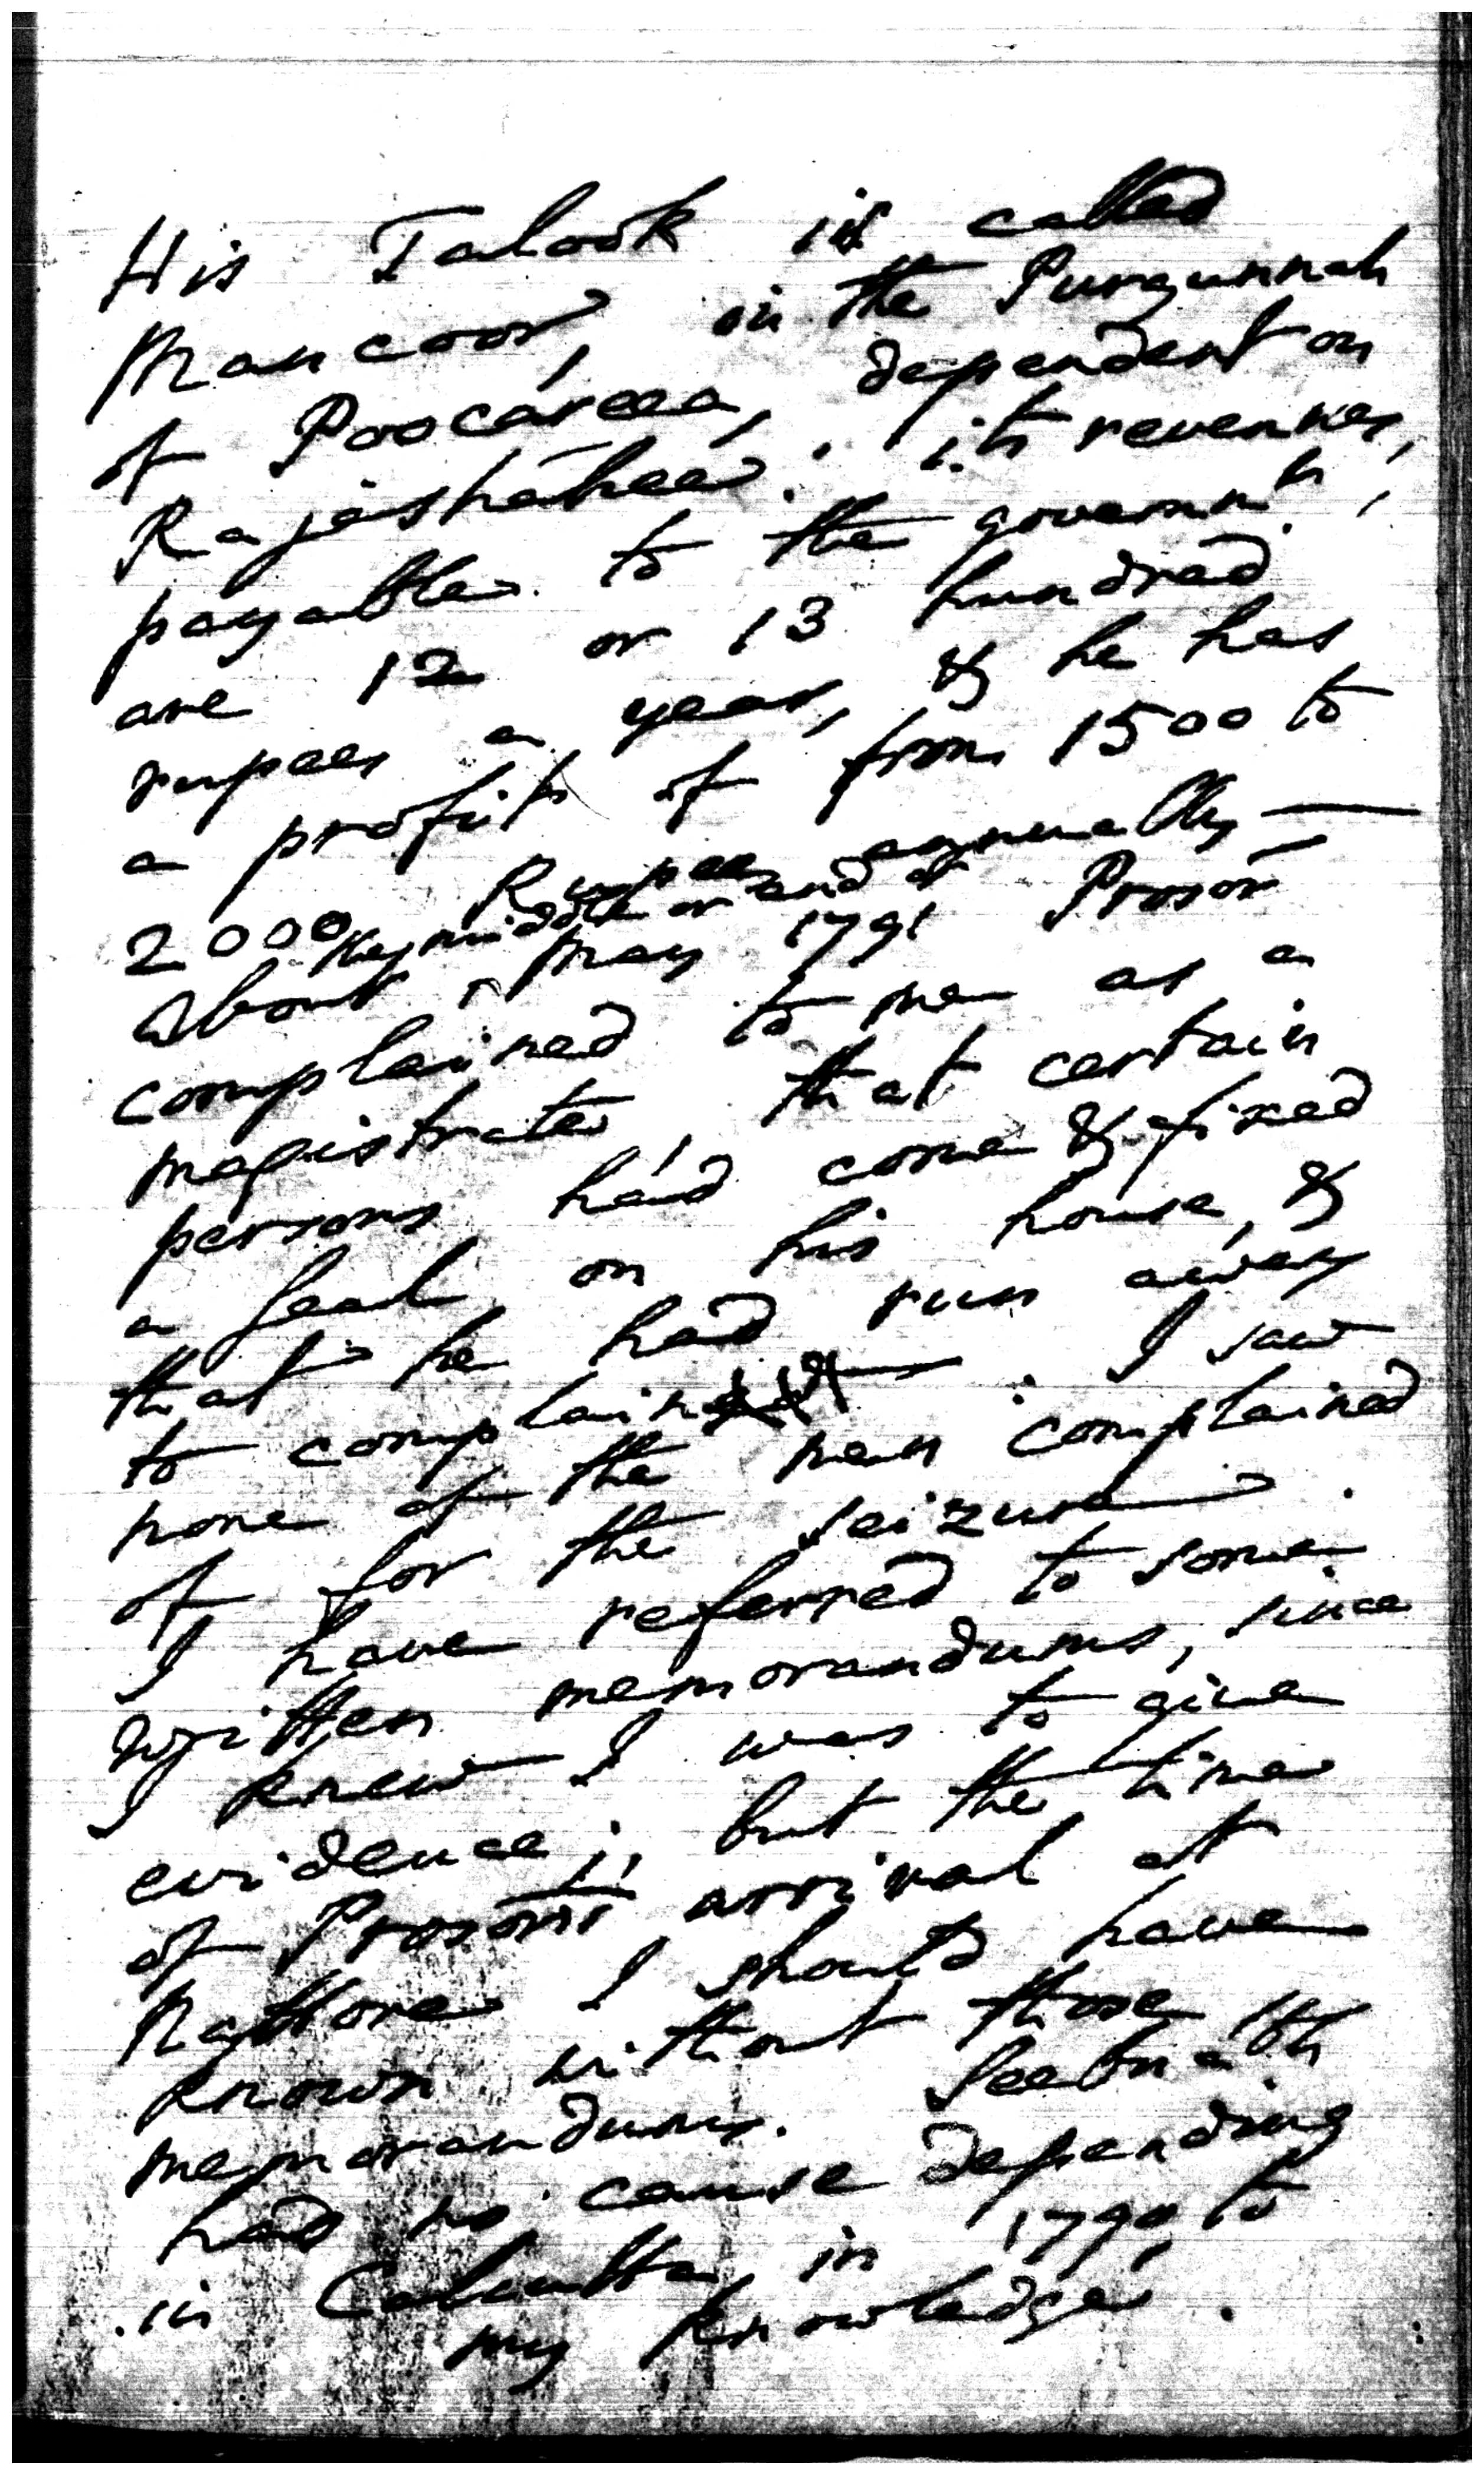 His Talook is called
Mancoor, in the Purgunnah
of Poocareea, dependent on
Rajeshahee: its revenues,
payable to the governm.ts,
are 12 or 13 hundred
rupees a year, & he has
a profit of from 1500 to
2000 Rupees annually —
the middle or end of
About May 1791 Prosor
complained to me as a
magistrate, that certain
persons had come & fixed
a seal on his house, &
that he had run away
to complain : I saw
none of the men complained
of for the seizure .
I have referred to some
written memorandums, since
I knew I was to give
evidence; but the time
of arrival at
Nattore I should have
known without those
memorandums. Seebnath
had no cause depending
in Calcutta in 1790 to
my knowledge.